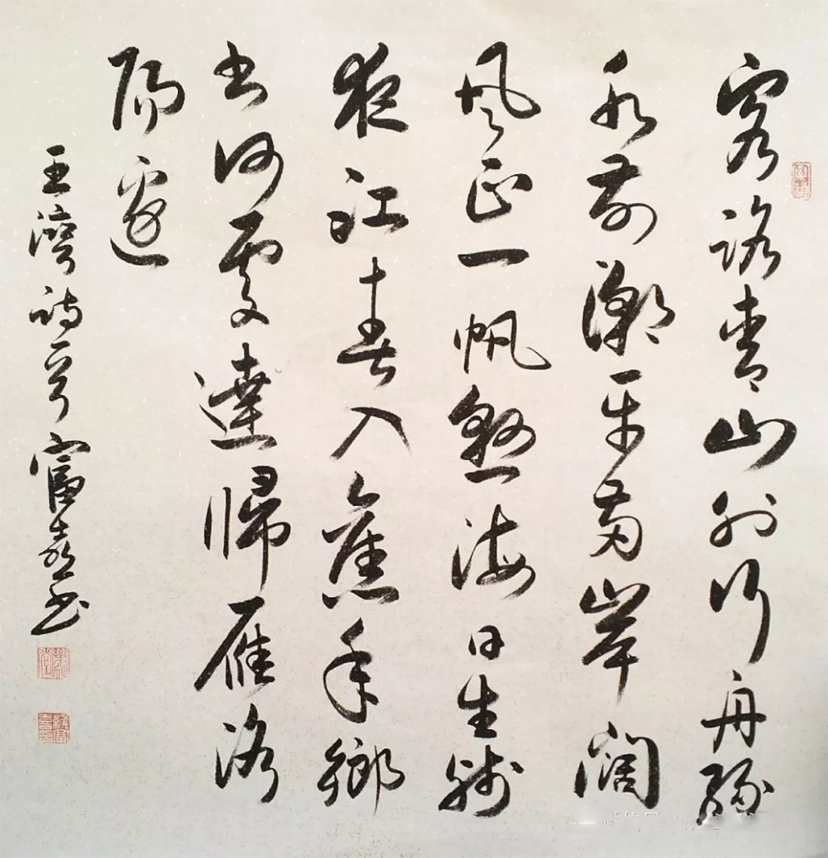 客路青山外行舟綠
水前潮平兩岸闊
風正一帆懸海日生殘
夜江春入舊年鄉
書何處達歸雁洛
陽邊
王灣詩一首